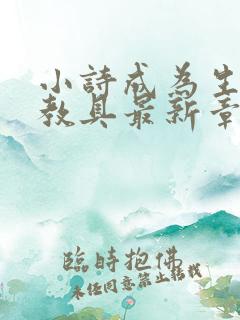 小詩成為生
教具最新章
臨時抱佛
未经同意禁止转载